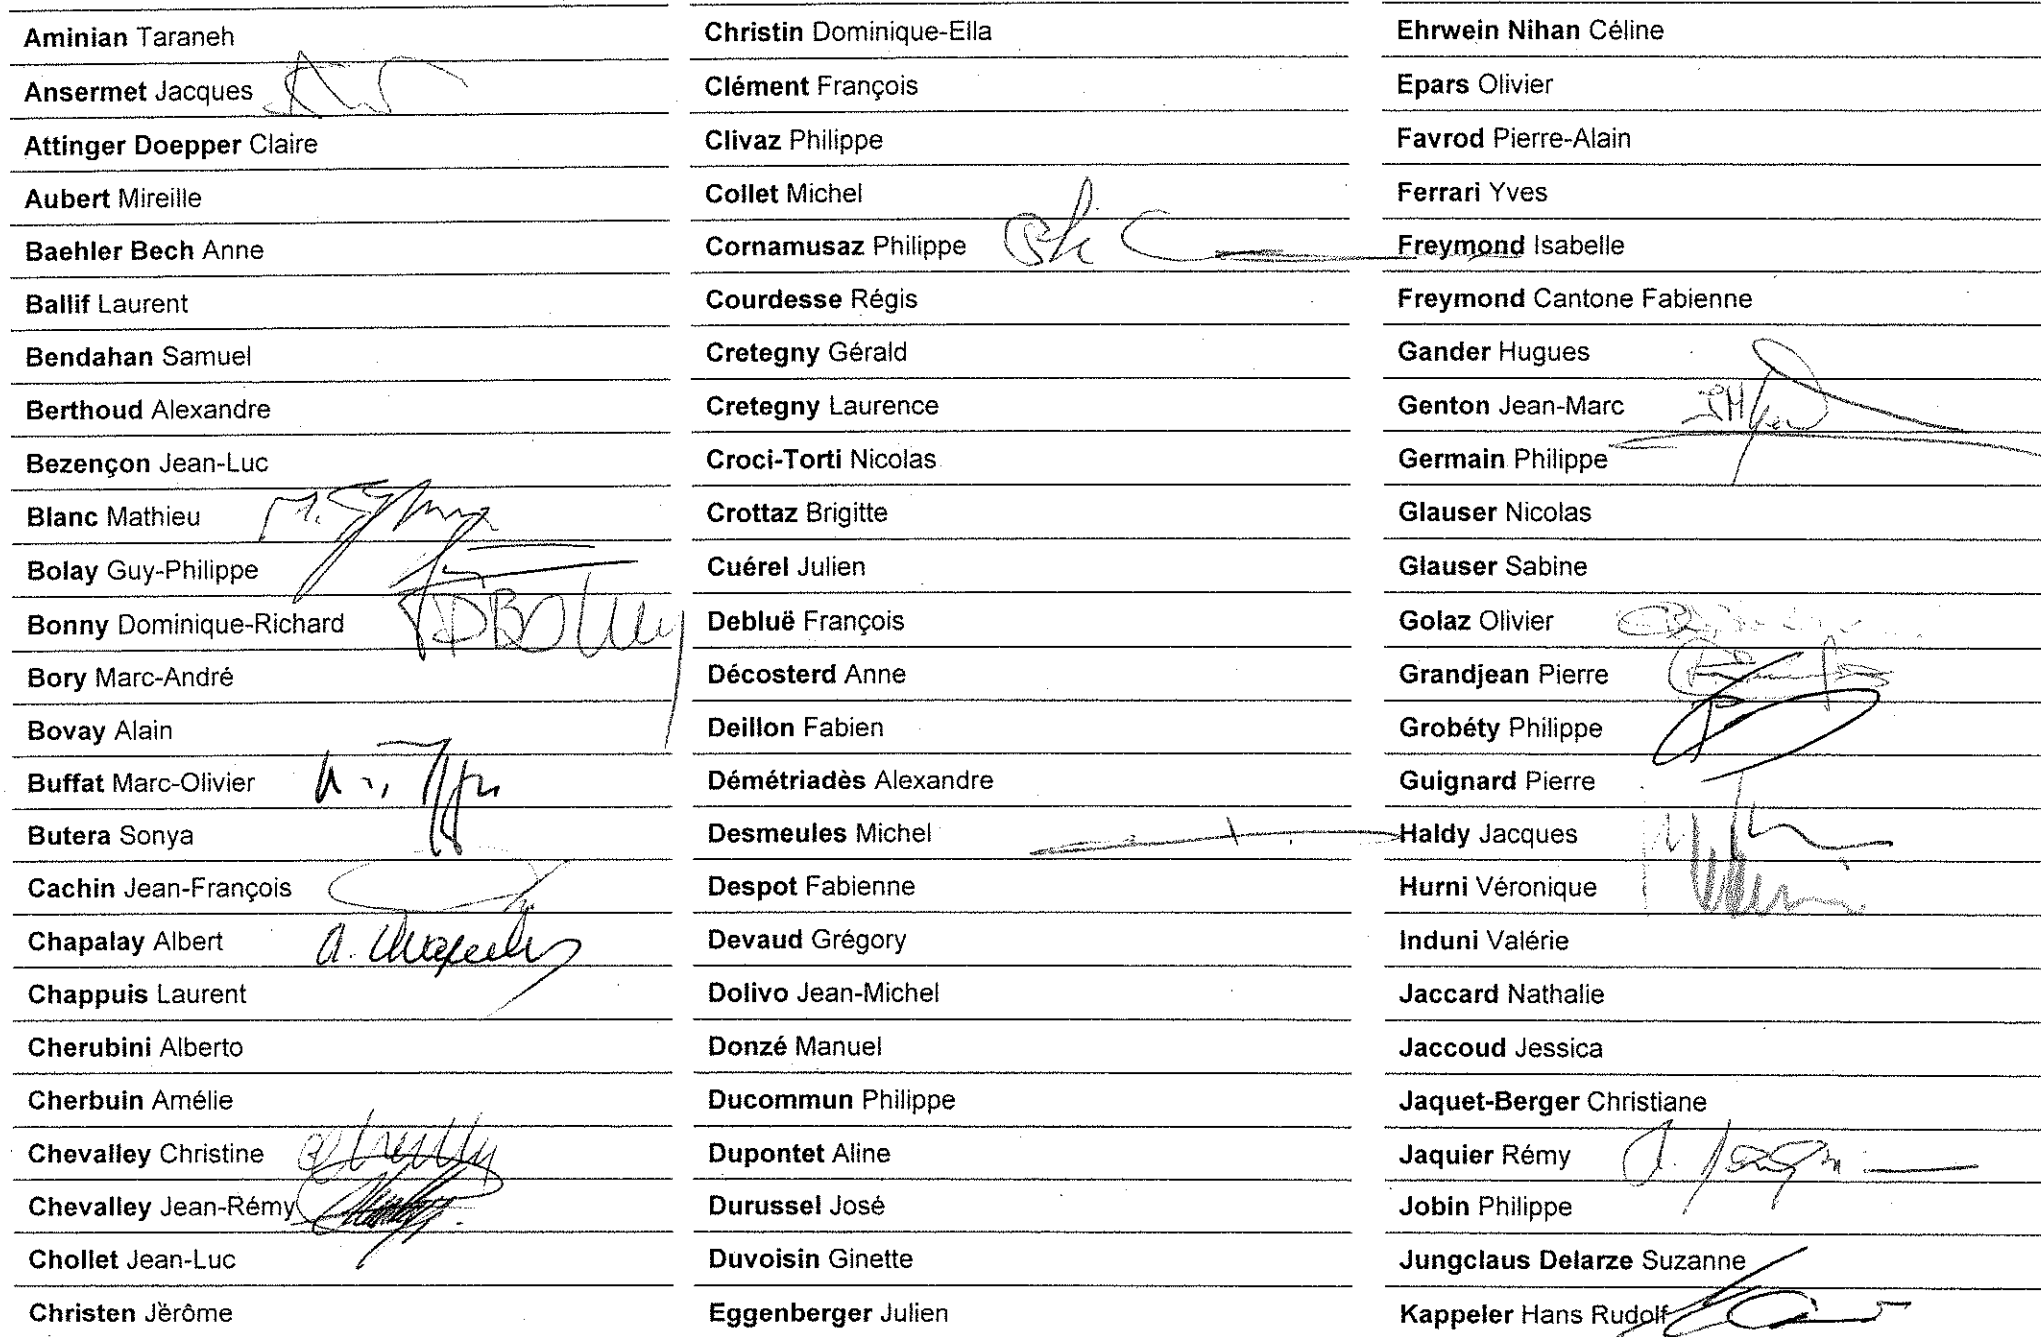 Aminian Taraneh
Ansermet Jacques
Attinger Doepper Claire
Aubert Mireille
Baehler Bech Anne
Ballif Laurent
Bendahan Samuel
Berthoud Alexandre
Bezençon Jean-Luc
Blanc Mathieu
Bolay Guy-Philippe
Bonny Dominique-Richard
Bory Marc-André
Bovay Alain
Buffat Marc-Olivier
Butera Sonya
Cachin Jean-François
Chapalay Albert A. Chapalay
Chappuis Laurent
Cherubini Alberto
Cherbuin Amélie
Chevalley Christine
Chevalley Jean-Rémy
Chollet Jean-Luc
Christen Jérôme
Christin Dominique-Ella
Clément François
Clivaz Philippe
Collet Michel
Cornamusaz Philippe
Courdesse Régis
Cretegny Gérald
Cretegny Laurence
Croci-Torti Nicolas
Crottaz Brigitte
Cuérel Julien
Debluë François
Décosterd Anne
Deillon Fabien
Démétriadès Alexandre
Desmeules Michel
Despot Fabienne
Devaud Grégory
Dolivo Jean-Michel
Donzé Manuel
Ducommun Philippe
Dupontet Aline
Durussel José
Duvoisin Ginette
Eggenberger Julien
Ehrwein Nihan Céline
Epars Olivier
Favrod Pierre-Alain
Ferrari Yves
Freymond Isabelle
Freymond Cantone Fabienne
Gander Hugues
Genton Jean-Marc
Germain Philippe
Glauser Nicolas
Glauser Sabine
Golaz Olivier
Grandjean Pierre
Grobéty Philippe
Guignard Pierre
Haldy Jacques
Hurni Véronique
Induni Valérie
Jaccard Nathalie
Jaccoud Jessica
Jaquet-Berger Christiane
Jaquier Rémy
Jobin Philippe
Jungclaus Delarze Suzanne
Kappeler Hans Rudolf